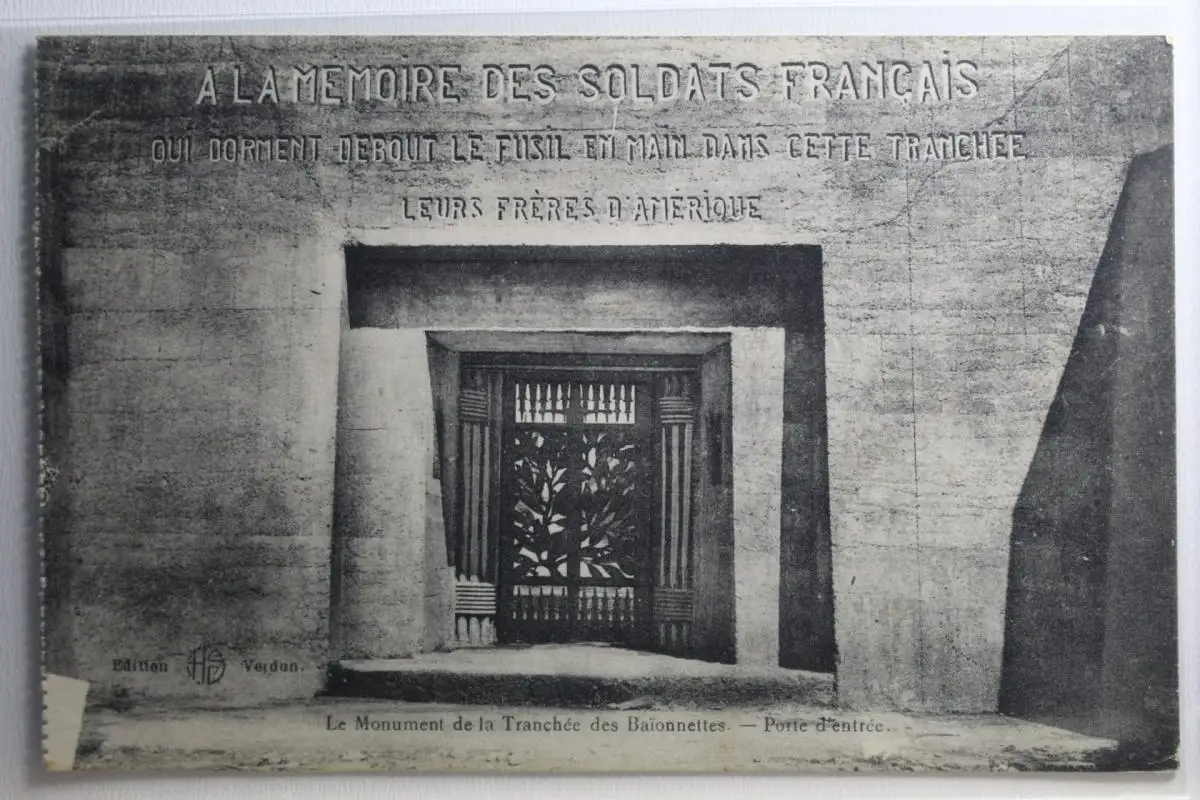 A LA MEMOIRE DES SOLDATS FRANÇAIS
QUI DORMENT DEBOUT LE FUSIL EN MAIN DANS CETTE TRANCHÉE
LEURS FRÈRES D'AMÉRIQUE
Edition HS Verdun.
Le Monument de la Tranchée des Baïonnettes. — Porte d'entrée.